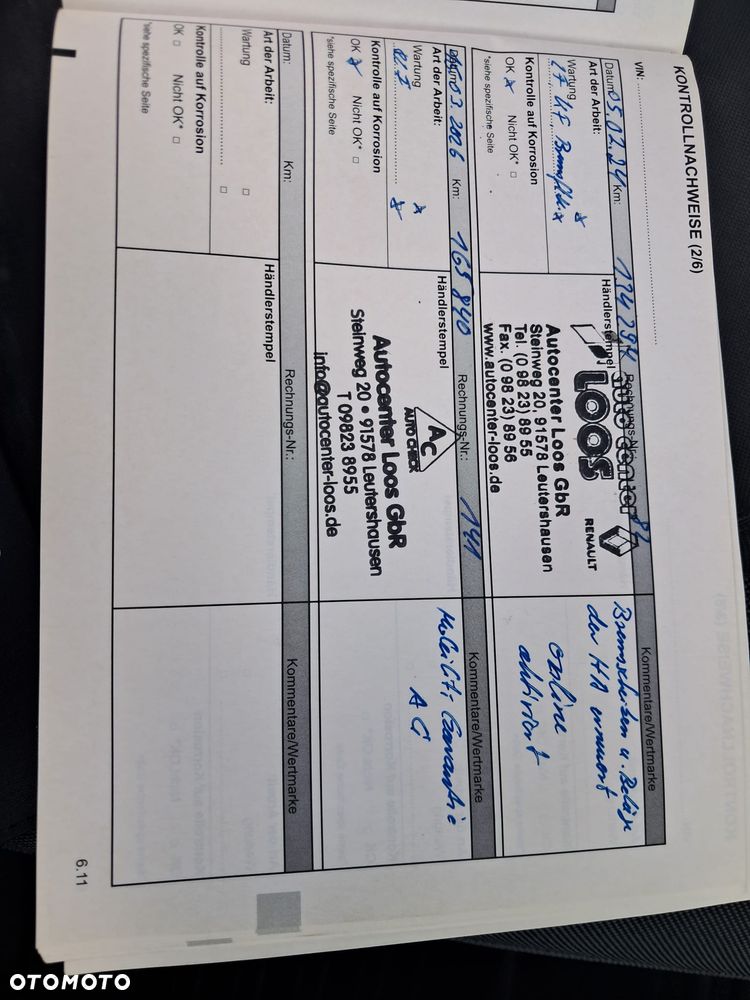 KONTROLLNACHWEISE (2/6)
VIN:
Datum: 05.02.24 Km: 134 294 Rechnungs-Nr.: 82 Kommentare/Wertmarke
Art der Arbeit:
Wartung
LF UF
Kontrolle auf Korrosion
OK Nicht OK*
*siehe spezifische Seite
Händlerstempel
auto center
LOOS
RENAULT
Autocenter Loos GbR
Steinweg 20, 91578 Leutershausen
Tel. (0 98 23) 89 55
Fax. (0 98 23) 89 56
www.autocenter-loos.de
Bremsscheiben u. Beläge
der HA erneuert
online
aktiviert
Datum: 03. 2026 Km: 165 840 Rechnungs-Nr.: 141 Kommentare/Wertmarke
Art der Arbeit:
Wartung
Kontrolle auf Korrosion
OK Nicht OK*
*siehe spezifische Seite
Händlerstempel
AC
AUTO CHECK
Autocenter Loos GbR
Steinweg 20 • 91578 Leutershausen
T 09823 8955
info@autocenter-loos.de
Mobilitäts Garantie
AG
Datum: Km: Rechnungs-Nr.: Kommentare/Wertmarke
Art der Arbeit:
Wartung
Kontrolle auf Korrosion
OK Nicht OK*
*siehe spezifische Seite
Händlerstempel
6.11
OTOMOTO